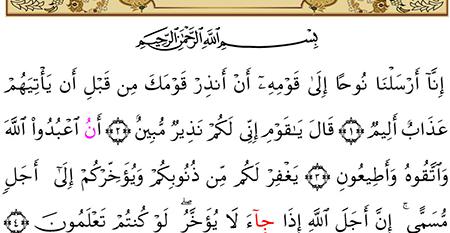 بِسْمِ اللَّهِ الرَّحْمَٰنِ الرَّحِيمِ
إِنَّآ أَرْسَلْنَا نُوحًا إِلَىٰ قَوْمِهِۦٓ أَنْ أَنذِرْ قَوْمَكَ مِن قَبْلِ أَن يَأْتِيَهُمْ
عَذَابٌ أَلِيمٌ ﴿١﴾ قَالَ يَـٰقَوْمِ إِنِّى لَكُمْ نَذِيرٌ مُّبِينٌ ﴿٢﴾ أَنُ اعْبُدُواْ اللَّهَ
وَاتَّقُوهُ وَأَطِيعُونِ ﴿٣﴾ يَغْفِرْ لَكُم مِّن ذُنُوبِكُمْ وَيُؤَخِّرْكُمْ إِلَىٰٓ أَجَلٍ
مُّسَمًّى ۚ إِنَّ أَجَلَ اللَّهِ إِذَا جِآءَ لَا يُؤَخَّرُ ۖ لَوْ كُنتُمْ تَعْلَمُونَ ﴿٤﴾